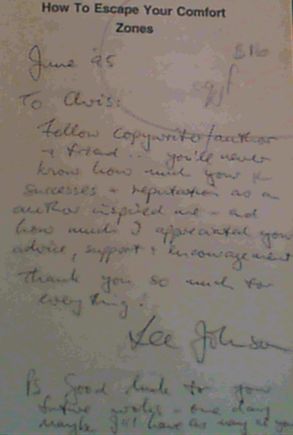 How To Escape Your Comfort
Zones
June '95
To Chris:
Fellow copywriter/author
+ friend... you'll never
know how much your
successes + reputation as an
author inspired me - and
how much I appreciated your
advice, support + encouragement
Thank you so much for
everything!
Lee Johnson
PS Good luck to your
future works - one day
maybe I'll have as many as you